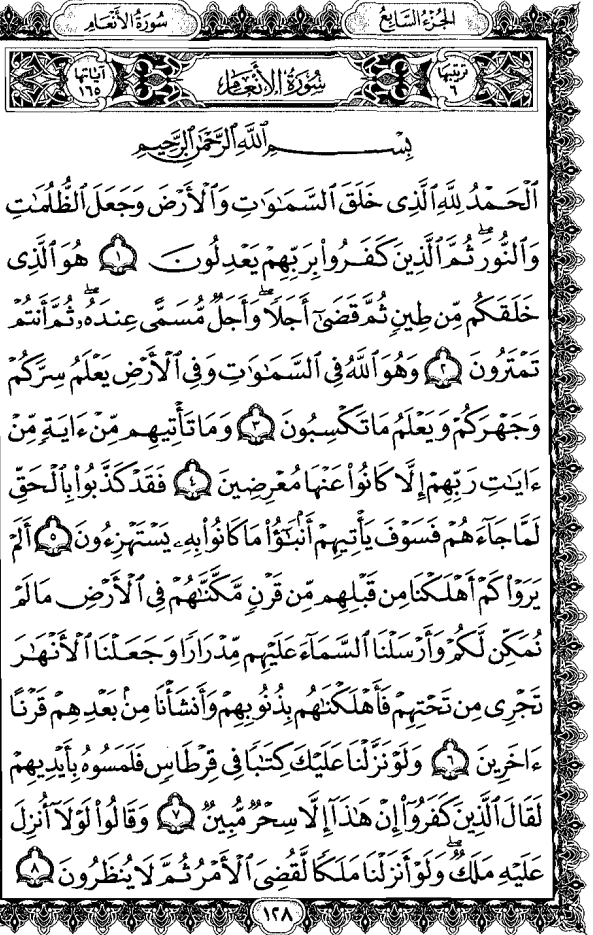 الجزء السابع
سورة الأنعام
ترتيبها ٦
سُورَةُ الأَنْعَامِ
آياتها ١٦٥
بِسْمِ اللَّهِ الرَّحْمَٰنِ الرَّحِيمِ
ٱلْحَمْدُ لِلَّهِ ٱلَّذِى خَلَقَ ٱلسَّمَـٰوَٰتِ وَٱلْأَرْضَ وَجَعَلَ ٱلظُّلُمَـٰتِ
وَٱلنُّورَ ۖ ثُمَّ ٱلَّذِينَ كَفَرُوا۟ بِرَبِّهِمْ يَعْدِلُونَ ١ هُوَ ٱلَّذِى
خَلَقَكُم مِّن طِينٍ ثُمَّ قَضَىٰٓ أَجَلًا ۖ وَأَجَلٌ مُّسَمًّى عِندَهُۥ ۖ ثُمَّ أَنتُمْ
تَمْتَرُونَ ٢ وَهُوَ ٱللَّهُ فِى ٱلسَّمَـٰوَٰتِ وَفِى ٱلْأَرْضِ يَعْلَمُ سِرَّكُمْ
وَجَهْرَكُمْ وَيَعْلَمُ مَا تَكْسِبُونَ ٣ وَمَا تَأْتِيهِم مِّنْ ءَايَةٍ مِّنْ
ءَايَـٰتِ رَبِّهِمْ إِلَّا كَانُوا۟ عَنْهَا مُعْرِضِينَ ٤ فَقَدْ كَذَّبُوا۟ بِٱلْحَقِّ
لَمَّا جَآءَهُمْ فَسَوْفَ يَأْتِيهِمْ أَنۢبَـٰٓؤُا۟ مَا كَانُوا۟ بِهِۦ يَسْتَهْزِءُونَ ٥ أَلَمْ
يَرَوْا۟ كَمْ أَهْلَكْنَا مِن قَبْلِهِم مِّن قَرْنٍ مَّكَّنَّـٰهُمْ فِى ٱلْأَرْضِ مَا لَمْ
نُمَكِّن لَّكُمْ وَأَرْسَلْنَا ٱلسَّمَآءَ عَلَيْهِم مِّدْرَارًا وَجَعَلْنَا ٱلْأَنْهَـٰرَ
تَجْرِى مِن تَحْتِهِمْ فَأَهْلَكْنَـٰهُم بِذُنُوبِهِمْ وَأَنشَأْنَا مِنۢ بَعْدِهِمْ قَرْنًا
ءَاخَرِينَ ٦ وَلَوْ نَزَّلْنَا عَلَيْكَ كِتَـٰبًا فِى قِرْطَاسٍ فَلَمَسُوهُ بِأَيْدِيهِمْ
لَقَالَ ٱلَّذِينَ كَفَرُوٓا۟ إِنْ هَـٰذَآ إِلَّا سِحْرٌ مُّبِينٌ ٧ وَقَالُوا۟ لَوْلَآ أُنزِلَ
عَلَيْهِ مَلَكٌ ۖ وَلَوْ أَنزَلْنَا مَلَكًا لَّقُضِىَ ٱلْأَمْرُ ثُمَّ لَا يُنظَرُونَ ٨
١٢٨